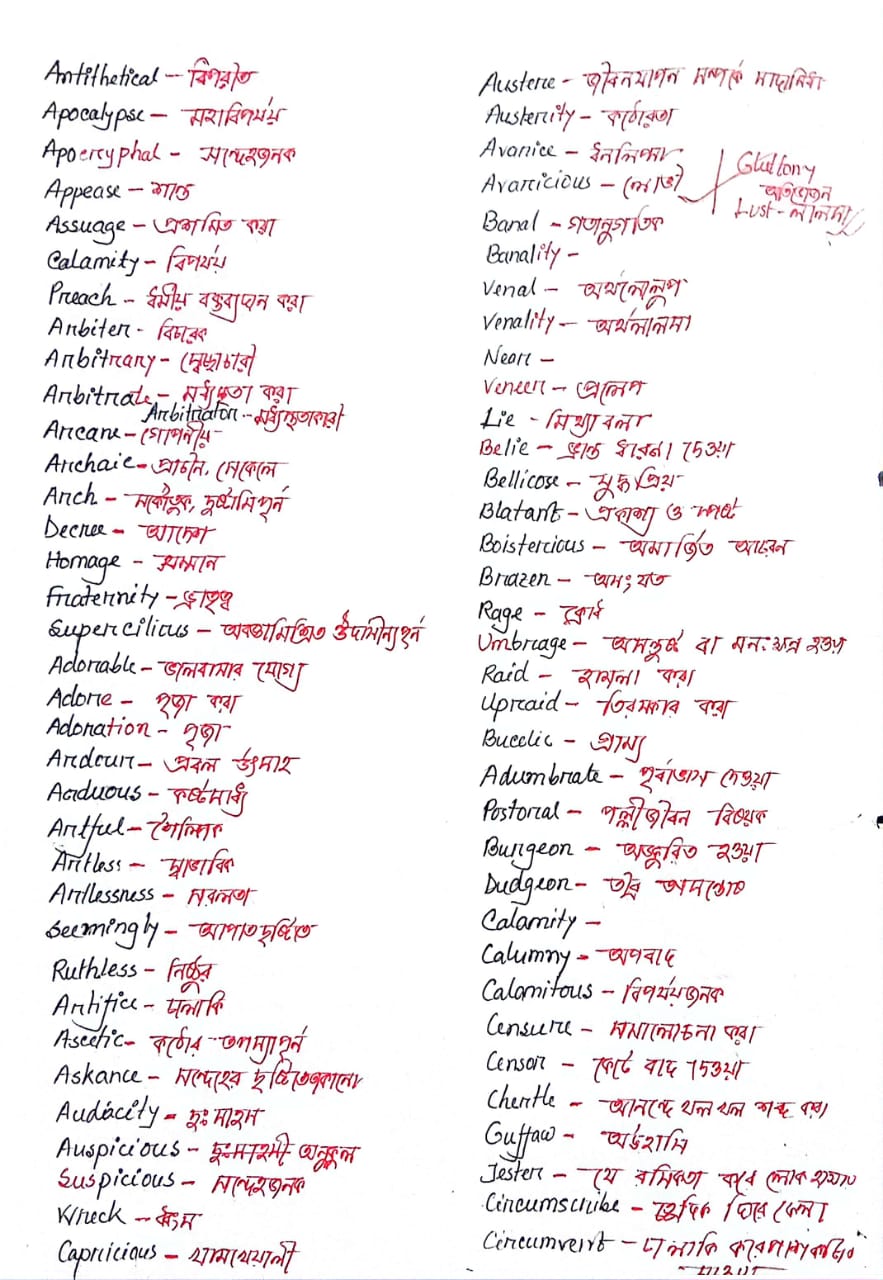 Antithetical – বিপরীত
Apocalypse – মহাবিপর্যয়
Apocryphal - সন্দেহজনক
Appease – শান্ত
Assuage – প্রশমিত করা
Calamity – বিপর্যয়
Preach – ধর্মীয় বক্তব্যদান করা
Arbiter - বিচারক
Arbitrary – স্বেচ্ছাচারী
Arbitrate – মধ্যস্থতা করা
Arbitrator – মধ্যস্থতাকারী
Arcane – গোপনীয়
Archaic – প্রাচীন, সেকেলে
Arch – সকৌতুক, দুষ্টামিপূর্ন
Decree – আদেশ
Homage – সম্মান
Fraternity – ভ্রাতৃত্ব
Supercilius – অবজ্ঞামিশ্রিত উদাসীন্যপূর্ন
Adorable – ভালবাসার যোগ্য
Adore – পূজা করা
Adoration – পূজা
Ardour – প্রবল উৎসাহ
Aaduous – কষ্টসাধ্য
Artful – শৈল্পিক
Artless – স্বাভাবিক
Artlessness – সরলতা
Seemingly – আপাতদৃষ্টিতে
Ruthless – নিষ্ঠুর
Artifice – চালাকি
Ascetic – কঠোর তপস্যাপূর্ন
Askance – সন্দেহের দৃষ্টিতে তাকানো
Audacity – দুঃসাহস
Auspicious – দুঃসাহসী অনুকূল
Suspicious – সন্দেহজনক
Wreck – ধ্বংস
Capricious – খামখেয়ালী
Austere – জীবনযাপন সম্পর্কে সাদাসিধা
Austerity – কঠোরতা
Avarice – ধনলিপ্সা
Avaricious – লোভী
Gluttony
অতিভোজন
Lust – লালসা
Banal – গতানুগতিক
Banality –
Venal – অর্থলোলুপ
Venality – অর্থলালসা
Near –
Veneer – প্রলেপ
Lie - মিথ্যা বলা
Belie – ভ্রান্ত ধারনা দেওয়া
Bellicose – যুদ্ধপ্রিয়
Blatant – প্রকাশ্য ও স্পষ্ট
Boistercious – অমার্জিত আচরন
Brazen – অসংযত
Rage – ক্রোধ
Umbrage – অসন্তুষ্ট বা মনঃক্ষুন্ন হওয়া
Raid – হামলা করা
Upraid – তিরস্কার করা
Bucolic – গ্রাম্য
Adumbrate – পূর্বাভাস দেওয়া
Postoral – পল্লীজীবন বিষয়ক
Burgeon – অঙ্কুরিত হওয়া
Dudgeon – তীব্র অসন্তোষ
Calamity –
Calumny – অপবাদ
Calamitous – বিপর্যয়জনক
Censure – সমালোচনা করা
Censor – কেটে বাদ দেওয়া
Chortle – আনন্দে খল খল শব্দ করা
Guffaw – অট্টহাসি
Jester – যে রসিকতা করে লোক হাসায়
Circumscribe – চতুর্দিক ঘিরে ফেলা
Circumvent – চালাকি করে পাশ কাটিয়ে
যাওয়া